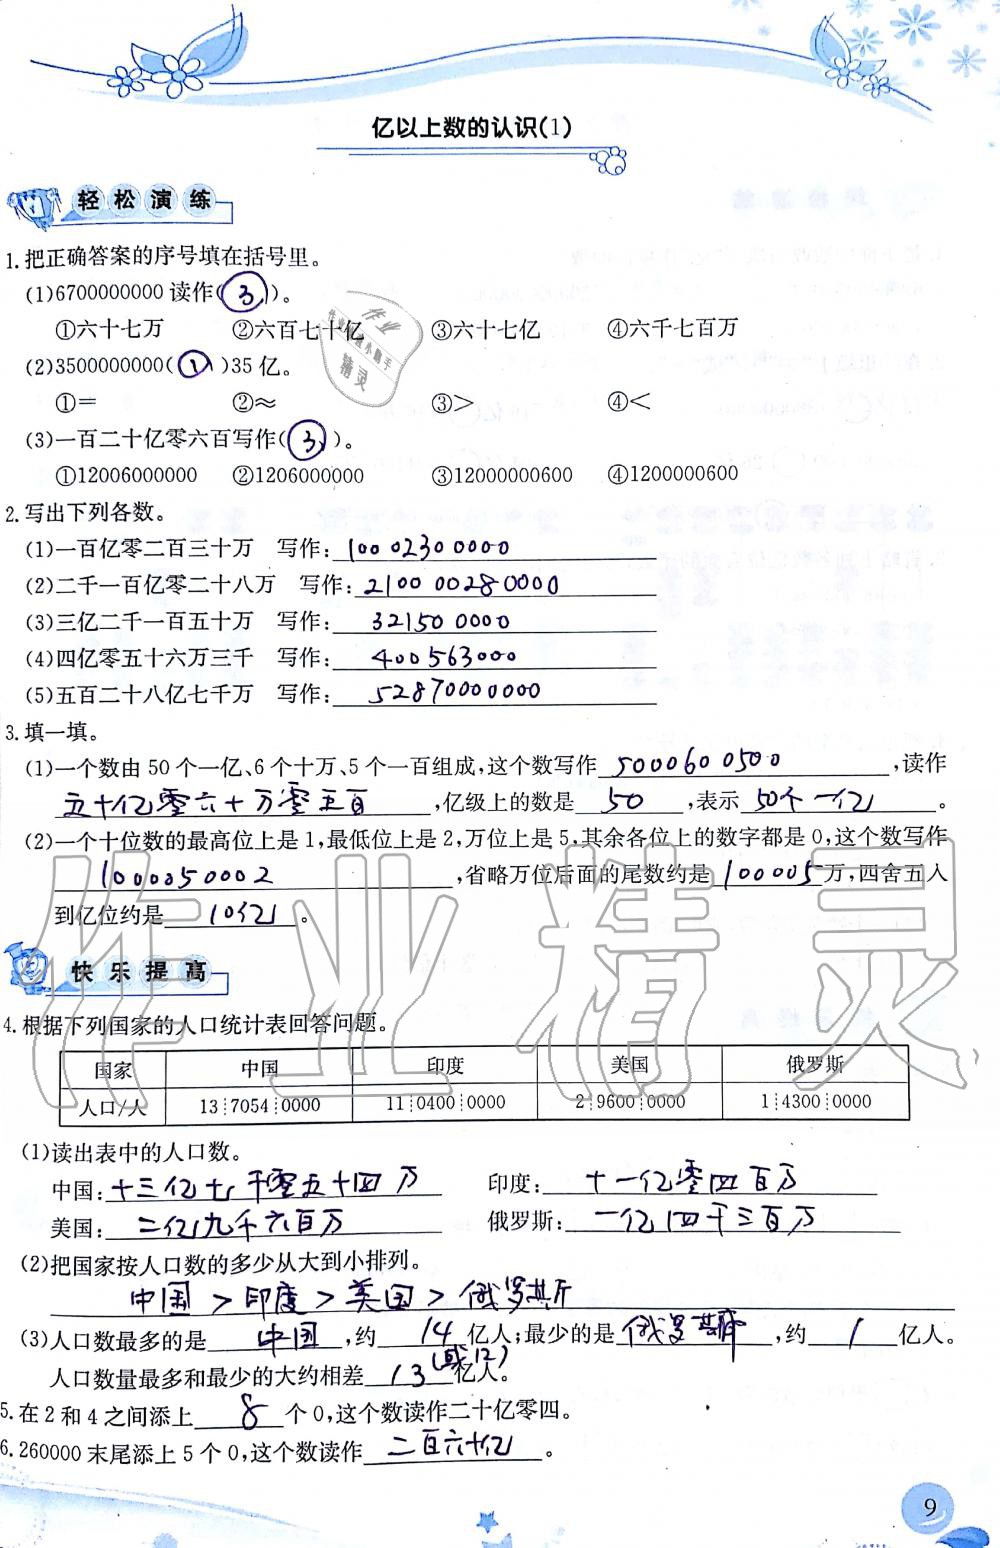 亿以上数的认识(1)
轻松演练
1.把正确答案的序号填在括号里。
(1)6700000000读作(3)。
①六十七万 ②六百七十亿 ③六十七亿 ④六千七百万
(2)3500000000(1)35亿。
①= ②≈ ③> ④<
(3)一百二十亿零六百写作(3)。
①12006000000 ②1206000000 ③12000000600 ④1200000600
2.写出下列各数。
(1)一百亿零二百三十万 写作:10002300000
(2)二千一百亿零二十八万 写作:210000280000
(3)三亿二千一百五十万 写作:321500000
(4)四亿零五十六万三千 写作:400563000
(5)五百二十八亿七千万 写作:52870000000
3.填一填。
(1)一个数由50个一亿、6个十万、5个一百组成,这个数写作5000600500,读作
五十亿零六十万零五百,亿级上的数是50,表示50个一亿。
(2)一个十位数的最高位上是1,最低位上是2,万位上是5,其余各位上的数字都是0,这个数写作
1000050002,省略万位后面的尾数约是100005万,四舍五入
到亿位约是10亿。
快乐提高
4.根据下列国家的人口统计表回答问题。
国家 中国 印度 美国 俄罗斯
人口/人 13┊7054┊0000 11┊0400┊0000 2┊9600┊0000 1┊4300┊0000
(1)读出表中的人口数。
中国:十三亿七千零五十四万 印度:十一亿零四百万
美国:二亿九千六百万 俄罗斯:一亿四千三百万
(2)把国家按人口数的多少从大到小排列。
中国>印度>美国>俄罗斯
(3)人口数最多的是中国,约14亿人;最少的是俄罗斯,约1亿人。
人口数量最多和最少的大约相差13(或12)亿人。
5.在2和4之间添上8个0,这个数读作二十亿零四。
6.260000末尾添上5个0,这个数读作二百六十亿。
9
作业精灵
作业
作业精灵小助手
精灵